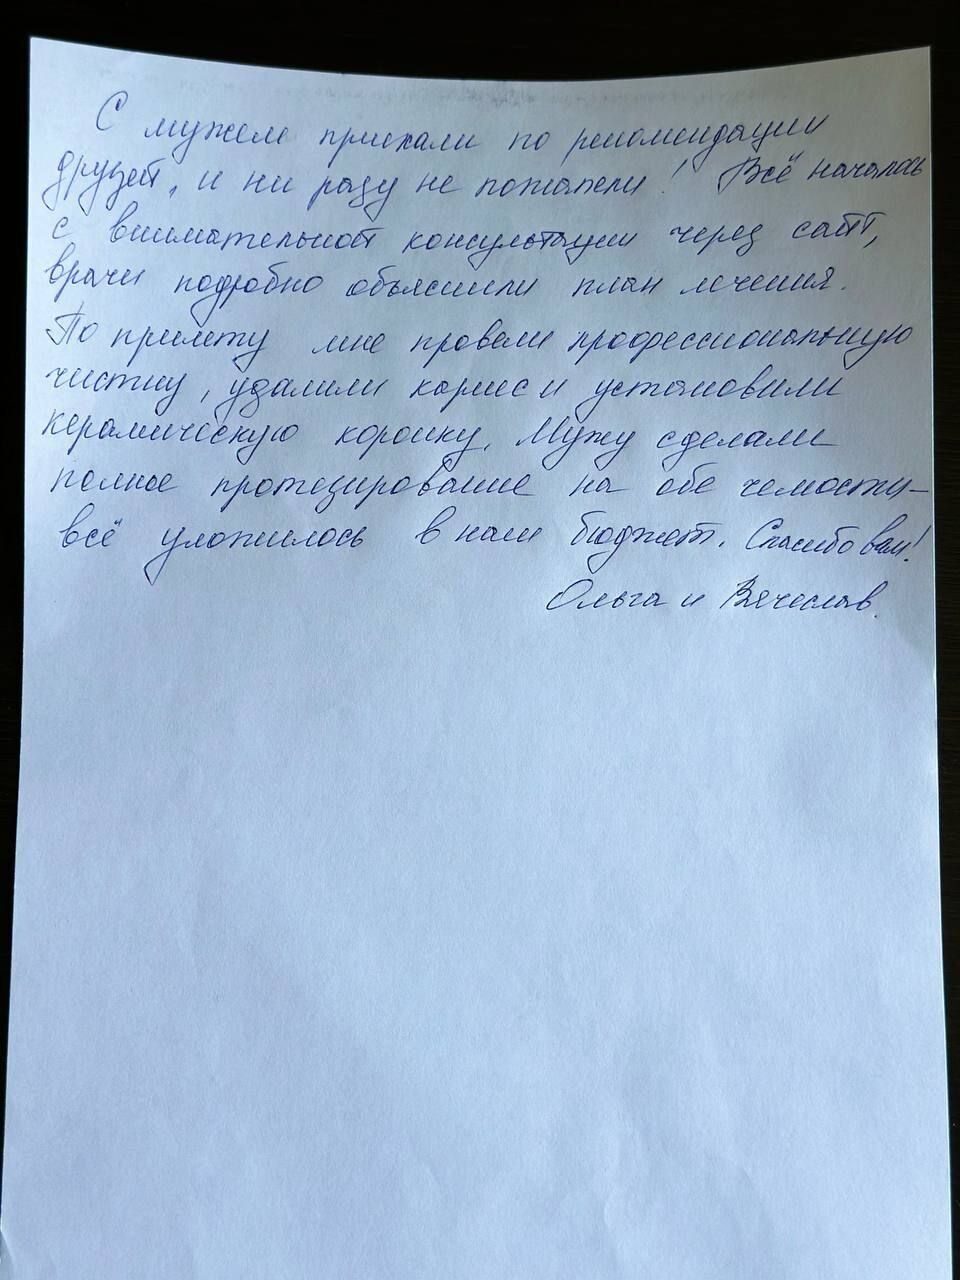 С мужем приехали по рекомендации
друзей, и ни разу не пожалели! Всё началось
с внимательной консультации через сайт,
врачи подробно объяснили план лечения.
По прилёту мне провели профессиональную
чистку, удалили кариес и установили
керамическую коронку. Мужу сделали
полное протезирование на обе челюсти -
всё уложилось в наш бюджет. Спасибо вам!
Ольга и Вячеслав.